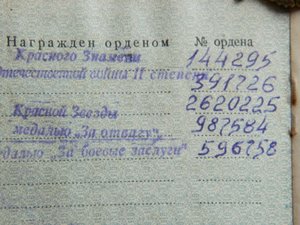 Награжден орденом № ордена
Красного Знамени 144295
Отечественной войны II степени 391726
Красной Звезды 2620225
медалью „За отвагу" 987584
медалью „За боевые заслуги" 596758